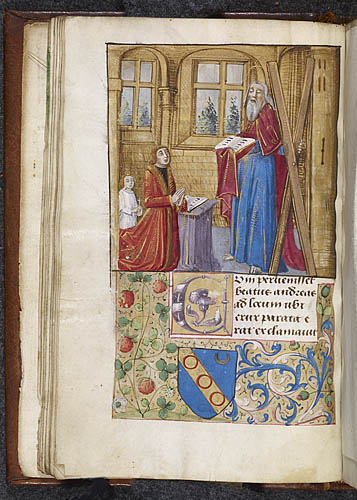 Cum peruenisset
beatus andreas
ad locum ubi
crux parata e
rat exclamauit